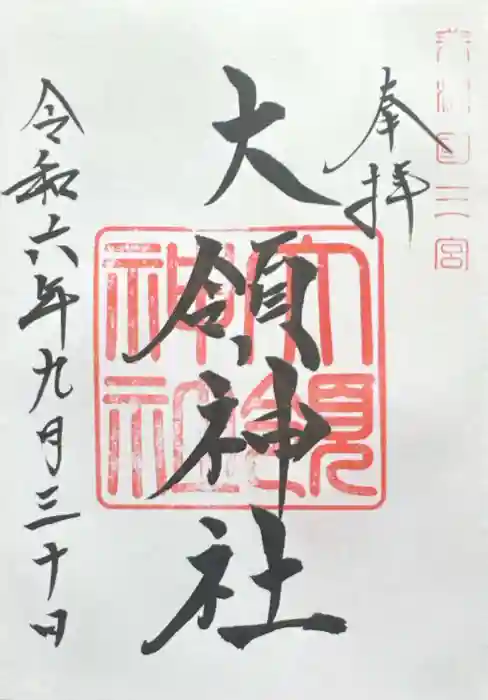 奉拝
大領神社
令和六年九月三十日
大領神社